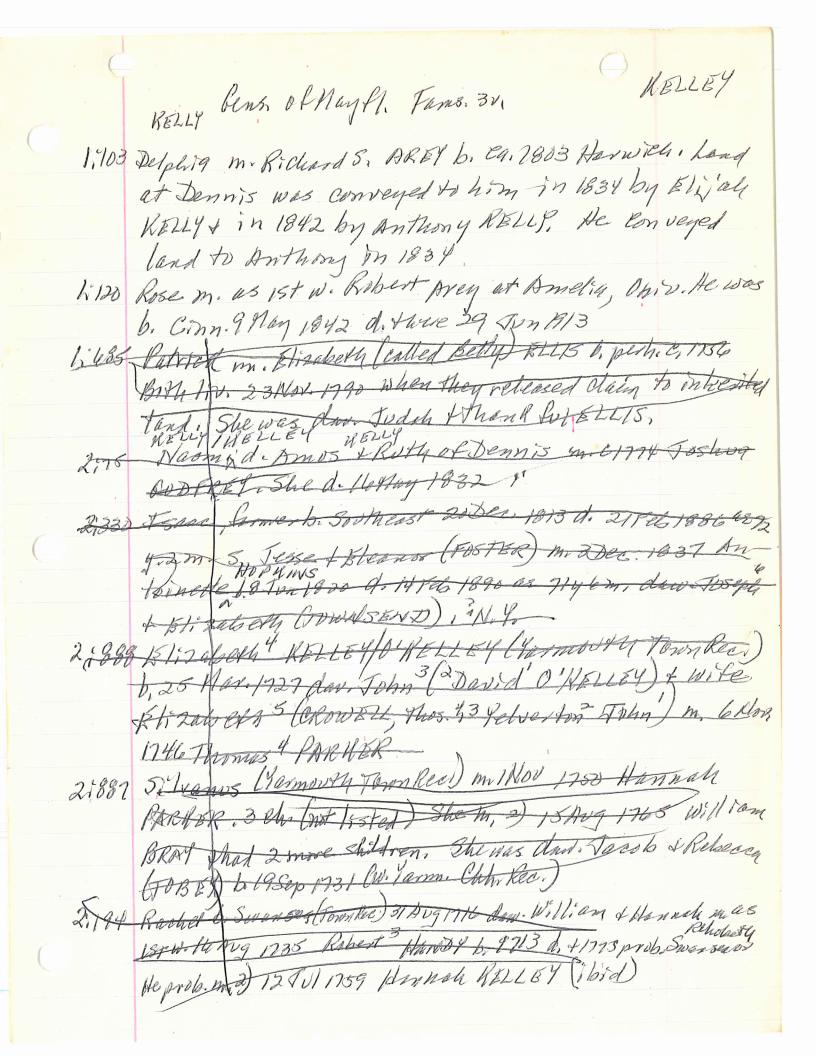 KELLEY
KELLY Gens. of Mayfl. Fams. 3v.
1:103 Delphia m. Richard S. AREY b. ca. 1803 Harwich. Land
at Dennis was conveyed to him in 1834 by Elijah
KELLY & in 1842 by Anthony KELLY. He conveyed
land to Anthony in 1834
1:120 Rose m. as 1st w. Robert Arey at Amelia, Ohio. He was
b. Cinn. 9 May 1842 d. there 29 Jun 1913
1:685 Patrick m. Elizabeth (called Betty) ELLIS b. perh. c. 1756
Both liv. 23 Nov. 1790 when they released claim to inherited
land. She was dau. Judah & ELLIS.
KELLY/KELLEY KELLY
Naomi d. Amos & Ruth of Dennis m. c1774 Joshua
GODFREY. She d. 16 May 1832
2:330 Isaac, farmer b. Southeast 20 Dec. 1813 d. 21 Feb 1886 ae 72
y. 2 m. S. Jesse & Eleanor (FOSTER) m. 3 Dec. 1837 An-
HOPKINS
toinette 18 Jun 1820 d. 14 Feb 1890 ae 71y 6m. dau. Joseph
& Elizabeth (TOWNSEND). N.Y.
2:888 Elizabeth 4 KELLEY/O'KELLEY (Yarmouth Town Rec.)
b. 25 Mar. 1727 dau. John 3 (2 David 1 O'KELLEY) & wife
Elizabeth 5 (CROWELL, Thos. 4,3 Yelverton 2 John 1) m. 6 Nov.
1746 Thomas 4 PARKER
2:887 Silvanus (Yarmouth Town Rec.) m. 1 Nov 1750 Hannah
PARKER. 3 ch. (not listed) She m. 2) 15 Aug 1765 William
BRAY & had 2 more children. She was dau. Jacob & Rebecca
(TOBEY) b. 19 Sep 1731 (W. Yarm. Chh. Rec.)
2:194 Rachel b. Swansea (Town Rec) 31 Aug 1716 dau. William & Hannah m. as
Rehoboth
1st w. Aug 1735 Robert 3 b. 1713 d. +1773 prob. Swansea or
He prob. m. 2) 12 Jul 1759 Hannah KELLEY (ibid)